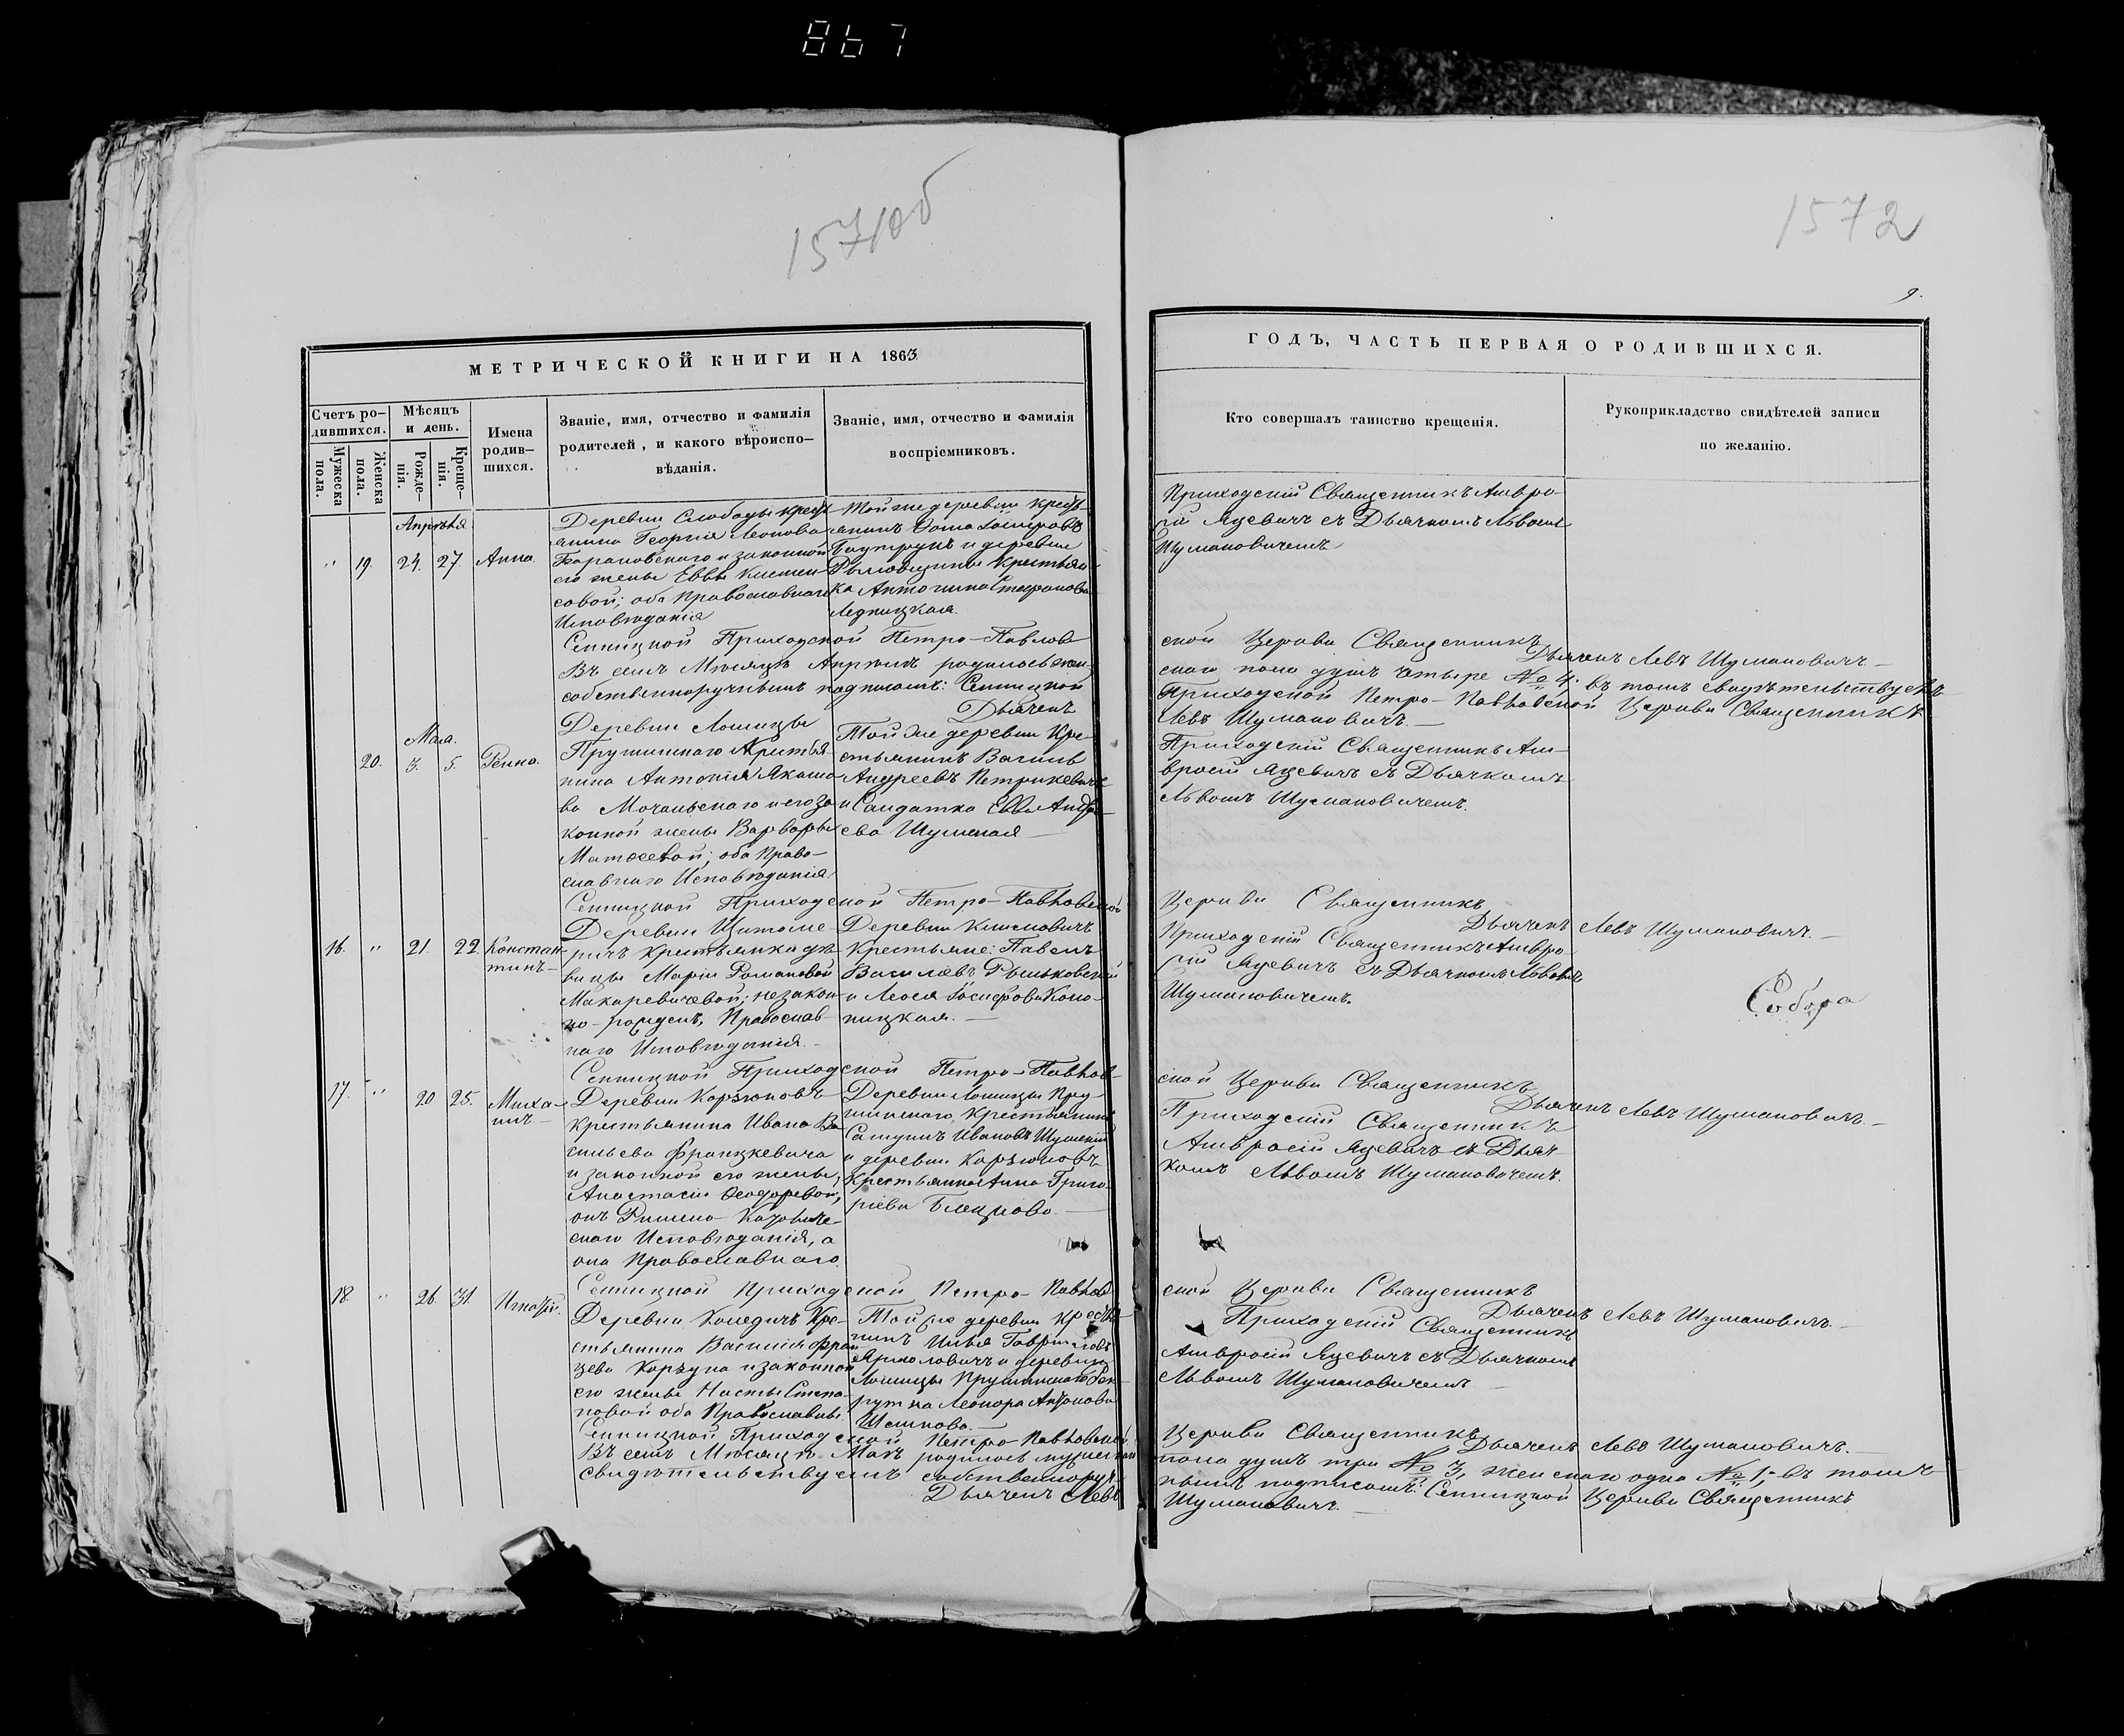 867
1571об
1572
9.
МЕТРИЧЕСКОЙ КНИГИ НА 1863
ГОДЪ, ЧАСТЬ ПЕРВАЯ О РОДИВШИХСЯ.
Счетъ ро-
дившихся.
Мужеска
пола.
Женска
пола.
Мѣсяцъ
и день.
Рожде-
нія.
Креще-
нія.
Имена
родив-
шихся.
Званіе, имя, отчество и фамилія
родителей, и какого вѣроиспо-
вѣданія.
Званіе, имя, отчество и фамилія
воспріемниковъ.
Кто совершалъ таинство крещенія.
Рукоприкладство свидѣтелей записи
по желанію.
Апрѣля
" 19 24. 27 Анна.
Деревни Слободы крестъ-
янина Георгія Леонова
Барановскаго и законной
его жены Еввы Климен-
совой; оба Православнаго
Исповѣданія
Той же деревни Кресть-
янинъ Ѳома Іосифовъ
и деревни
Крестьян-
ка Антонина Стефанова
Ледницкая.
Приходскій Священникъ Амвро-
сій Яцевичъ съ Дьячкомъ Львомъ
Шумановичемъ
Сенницкой Приходской Петро-Павлов-
ской Церкви Священникъ
Дьячекъ Левъ Шумановичъ —
Въ семъ Мѣсяцѣ Апрѣлѣ родилось жен-
скаго пола душъ четыре № 4. въ томъ свидѣтельствуемъ
собственноручнымъ подписомъ: Сенницкой
Приходской Петро-Павловской Церкви Священникъ
Дьячекъ
Левъ Шумановичъ. —
Мая.
20. 3. 5.
Деревни Лошицы
Прушинскаго Крестья-
нина Антонія Якимо-
ва Мочальскаго и его за-
конной жены Варвары
Матѳеевой; оба Право-
славнаго Исповѣданія.
Той же деревни Кре-
стьянинъ Василь
Андреевъ Петрикевичъ
и Солдатка Евва Андре-
ева Шумская —
Приходскій Священникъ Ам-
вросій Яцевичъ съ Дьячкомъ
Львомъ Шумановичемъ.
Сенницкой Приходской Петро-Павловской
Церкви Священникъ
Дьячекъ Левъ Шумановичъ. —
16. " 21. 22. Констан-
тинъ —
Деревни
Крестьянки дѣ-
вицы Маріи Романовой
Макаревичевой; незакон-
но-рожденъ, Православ-
наго Исповѣданія. —
Деревни Климовичъ
Крестьяне: Павелъ
Василевъ Рыльковскій
и Леося Іосифова Коно-
пицкая. —
Приходскій Священникъ Амвро-
сій Яцевичъ съ Дьячкомъ Львомъ
Шумановичемъ.
Собора
Сенницкой Приходской Петро-Павлов-
ской Церкви Священникъ
Дьячекъ Левъ Шумановичъ. —
17. " 20 25. Миха-
илъ —
Деревни Корзюковъ
Крестьянина Ивана Ва-
сильева Францкевича
и законной его жены,
Анастасіи Ѳеодоровой,
онъ Римско-Католиче-
скаго Исповѣданія, а
она Православнаго
Деревни Лошицы Пру-
шинскаго Крестьянинъ
Самуилъ Ивановъ Шумскій
и деревни Корзюковъ
Крестьянка Анна Григо-
рьева —
Приходскій Священникъ
Амвросій Яцевичъ съ Дьяч-
комъ Львомъ Шумановичемъ.
Сенницкой Приходской Петро-Павлов-
ской Церкви Священникъ
Дьячекъ Левъ Шумановичъ. —
18. " 26. 31. Игнатій.
Деревни Копедичъ Кре-
стьянина Василія Фран-
цева Корзуна и законной
его жены Насты Степа-
новой оба Православнаго.
Той же деревни Крестья-
нинъ Илья Гавриловъ
Ярмоловичъ и деревни
Лошицы Прушинской Рек-
рутка Леонора Антонова
Шешкова. —
Приходскій Священникъ
Амвросій Яцевичъ съ Дьячкомъ
Львомъ Шумановичемъ —
Сенницкой Приходской Петро-Павловской
Церкви Священникъ
Дьячекъ Левъ Шумановичъ. —
Въ семъ Мѣсяцѣ Маѣ родилось мужескаго
пола душъ три № 3, женскаго одна № 1; въ томъ
свидѣтельствуемъ собственноруч-
нымъ подписомъ: Сенницкой Церкви Священникъ
Дьячекъ Левъ
Шумановичъ. —